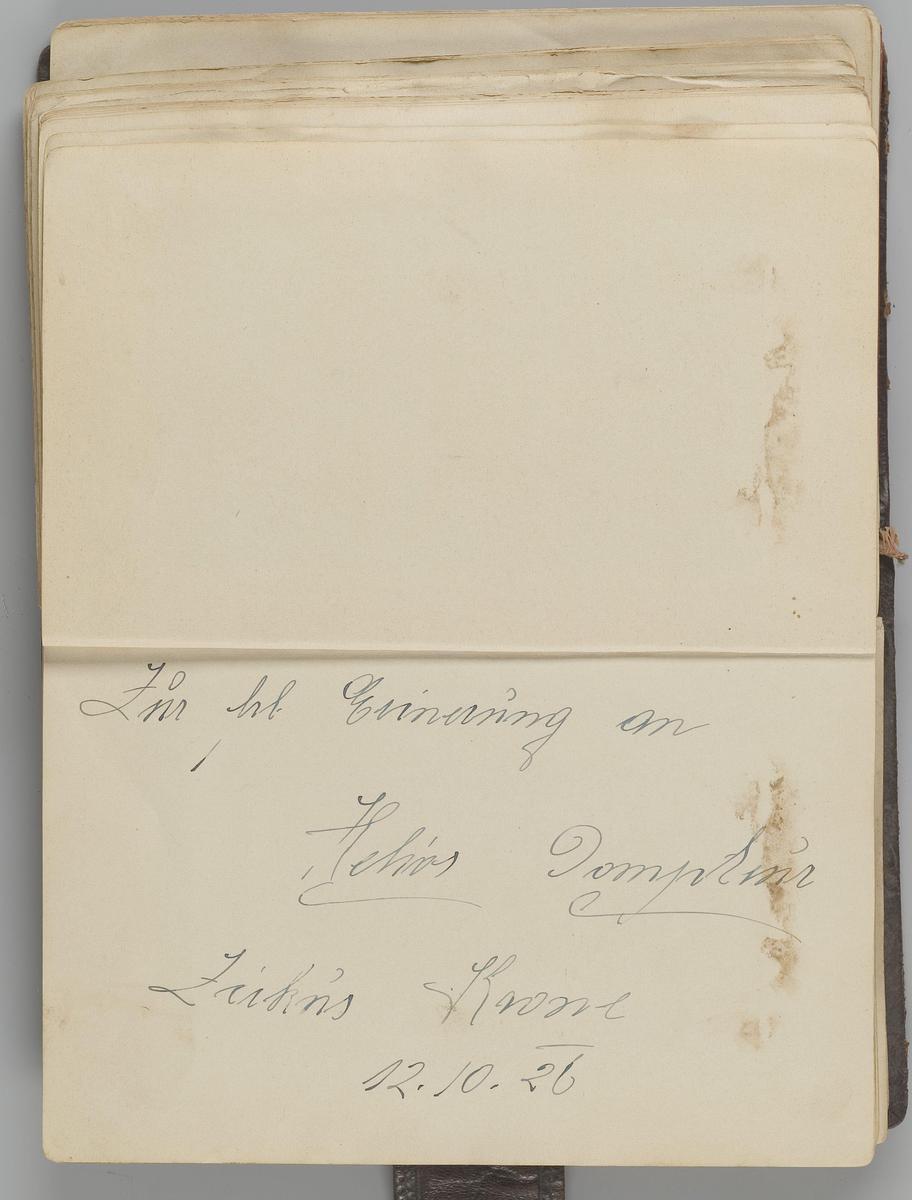 Zur frl. Erinerung an
Helios Dompteur
Zirkus Krone
12.10.26